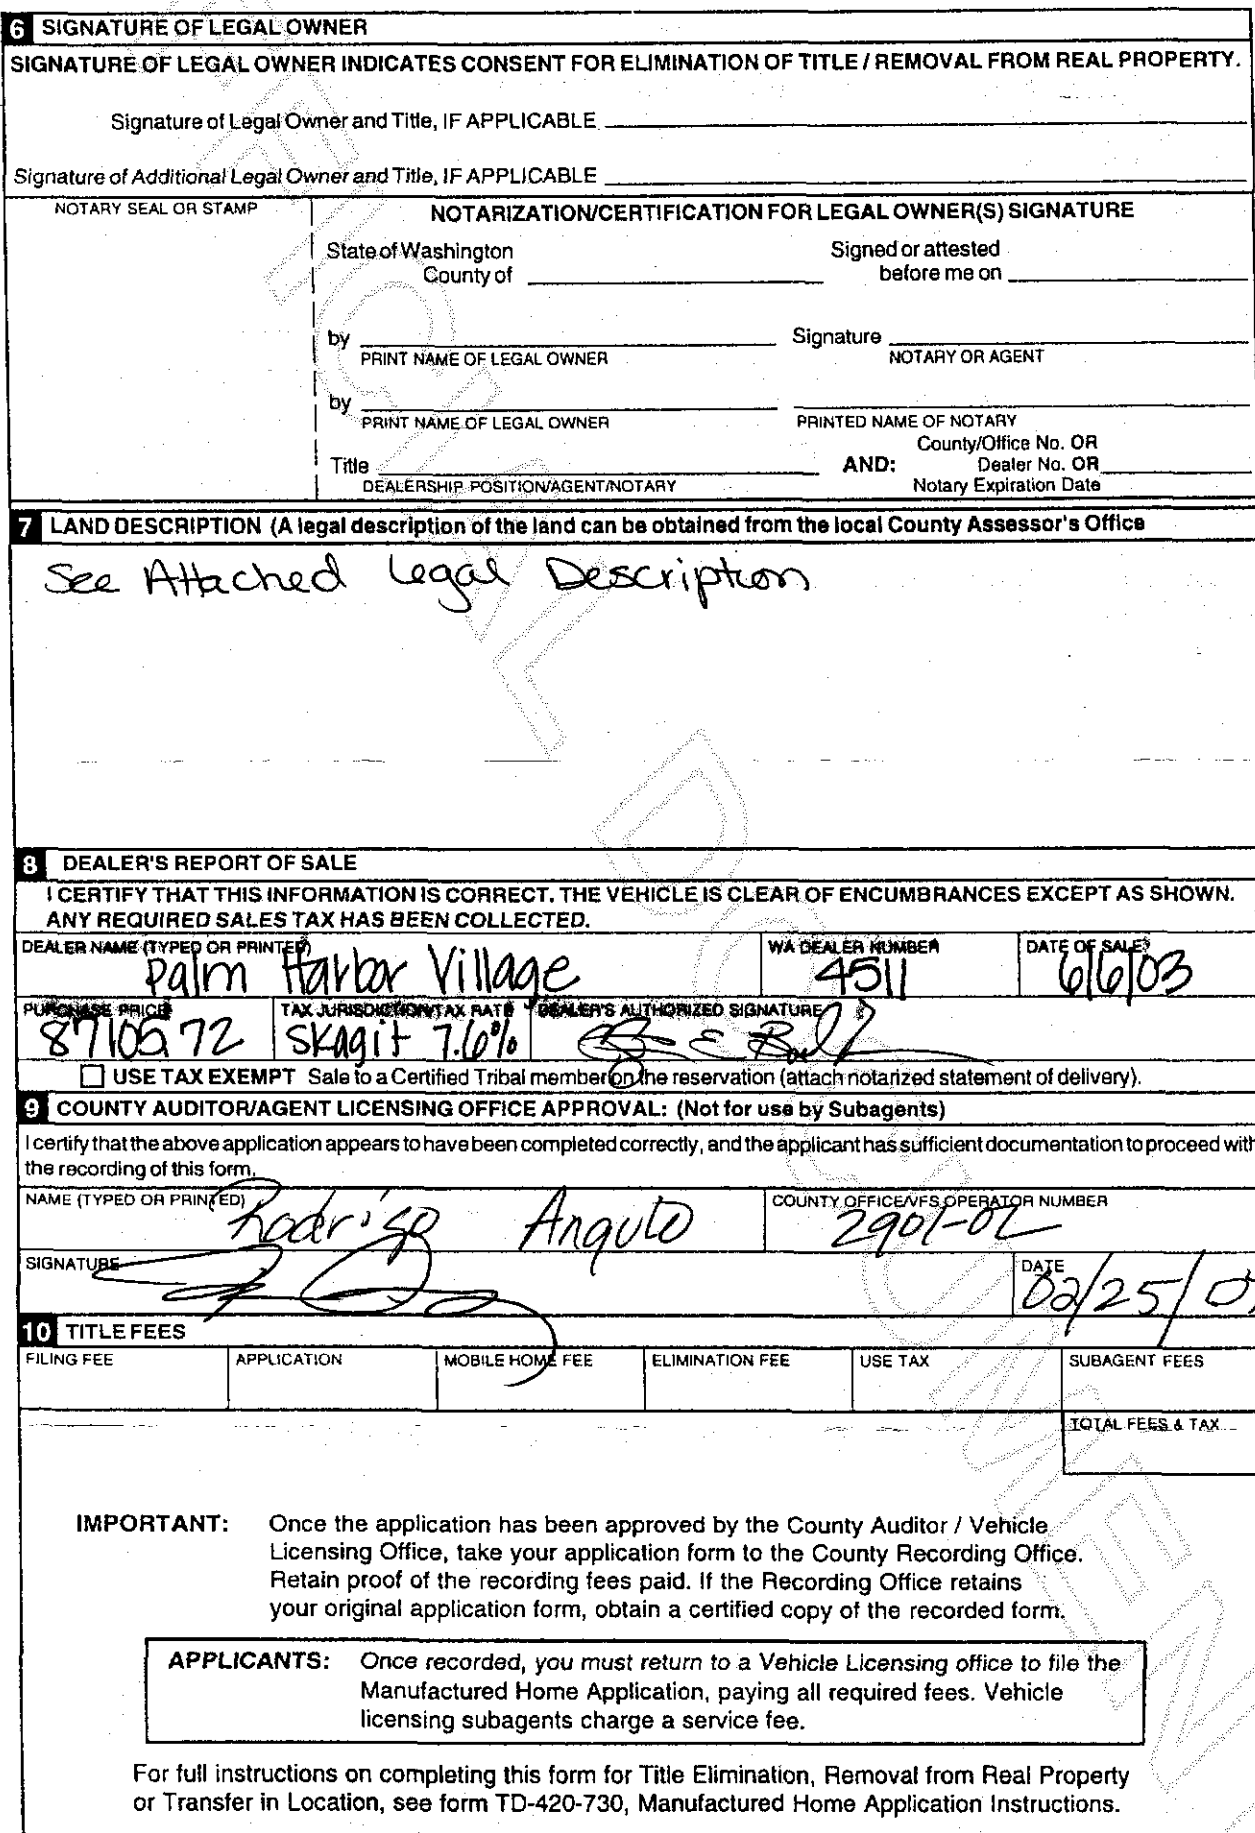 6 SIGNATURE OF LEGAL OWNER
SIGNATURE OF LEGAL OWNER INDICATES CONSENT FOR ELIMINATION OF TITLE / REMOVAL FROM REAL PROPERTY.
Signature of Legal Owner and Title, IF APPLICABLE
Signature of Additional Legal Owner and Title, IF APPLICABLE
NOTARY SEAL OR STAMP
NOTARIZATION/CERTIFICATION FOR LEGAL OWNER(S) SIGNATURE
State of Washington Signed or attested
County of before me on
by Signature
PRINT NAME OF LEGAL OWNER NOTARY OR AGENT
by
PRINT NAME OF LEGAL OWNER PRINTED NAME OF NOTARY
County/Office No. OR
Title AND: Dealer No. OR
DEALERSHIP POSITION/AGENT/NOTARY Notary Expiration Date
7 LAND DESCRIPTION (A legal description of the land can be obtained from the local County Assessor's Office
See Attached Legal Description
8 DEALER'S REPORT OF SALE
I CERTIFY THAT THIS INFORMATION IS CORRECT. THE VEHICLE IS CLEAR OF ENCUMBRANCES EXCEPT AS SHOWN.
ANY REQUIRED SALES TAX HAS BEEN COLLECTED.
DEALER NAME (TYPED OR PRINTED) WA DEALER NUMBER DATE OF SALE
Palm Harbor Village 4511 6/6/03
PURCHASE PRICE TAX JURISDICTION/TAX RATE DEALER'S AUTHORIZED SIGNATURE
Skagit 7.6%
USE TAX EXEMPT Sale to a Certified Tribal member on the reservation (attach notarized statement of delivery).
9 COUNTY AUDITOR/AGENT LICENSING OFFICE APPROVAL: (Not for use by Subagents)
I certify that the above application appears to have been completed correctly, and the applicant has sufficient documentation to proceed with
the recording of this form.
NAME (TYPED OR PRINTED) COUNTY OFFICE/VFS OPERATOR NUMBER
Rodrigo Angulo 2901-02
SIGNATURE DATE
02/25/0
10 TITLE FEES
FILING FEE APPLICATION MOBILE HOME FEE ELIMINATION FEE USE TAX SUBAGENT FEES
TOTAL FEES & TAX
IMPORTANT: Once the application has been approved by the County Auditor / Vehicle
Licensing Office, take your application form to the County Recording Office.
Retain proof of the recording fees paid. If the Recording Office retains
your original application form, obtain a certified copy of the recorded form.
APPLICANTS: Once recorded, you must return to a Vehicle Licensing office to file the
Manufactured Home Application, paying all required fees. Vehicle
licensing subagents charge a service fee.
For full instructions on completing this form for Title Elimination, Removal from Real Property
or Transfer in Location, see form TD-420-730, Manufactured Home Application Instructions.